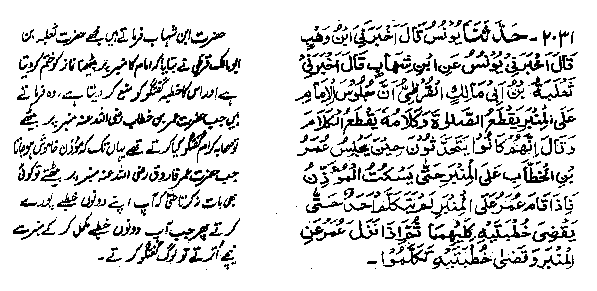 ٢٠٣١ - حَدَّثَنَا يُونُسُ قَالَ أَخْبَرَنِي ابْنُ وَهْبٍ
قَالَ أَخْبَرَنِي يُونُسُ عَنِ ابْنِ شِهَابٍ قَالَ أَخْبَرَنِي
ثَعْلَبَةُ بْنُ أَبِي مَالِكٍ الْقُرَظِيُّ أَنَّ جُلُوسَ الْإِمَامِ
عَلَى الْمِنْبَرِ يَقْطَعُ الصَّلَاةَ وَكَلَامُهُ يَقْطَعُ الْكَلَامَ
وَقَالَ إِنَّهُمْ كَانُوا يَتَحَدَّثُونَ حِيْنَ يَجْلِسُ عُمَرُ
بْنُ الْخَطَّابِ عَلَى الْمِنْبَرِ حَتَّى يَسْكُتَ الْمُؤَذِّنُ
فَإِذَا قَامَ عُمَرُ عَلَى الْمِنْبَرِ لَمْ يَتَكَلَّمْ أَحَدٌ حَتَّى
يَقْضِيَ خُطْبَتَيْهِ كِلَيْهِمَا ثُمَّ إِذَا نَزَلَ عُمَرُ عَنِ
الْمِنْبَرِ وَقَضَى خُطْبَتَيْهِ تَكَلَّمُوا -
حضرت ابن شہاب فرماتے ہیں مجھے حضرت ثعلبہ بن
ابی مالک قرظی نے بتایا کہ امام کا منبر پر بیٹھنا نماز کو ختم کر دیتا
ہے اور اس کا خطبہ گفتگو کو منع کر دیتا ہے، وہ فرماتے
ہیں جب حضرت عمر بن خطاب رضی اللہ عنہ منبر پر بیٹھتے
تو صحابہ کرام گفتگو کیا کرتے تھے یہاں تک کہ مؤذن خاموش ہو جاتا
جب حضرت عمر فاروق رضی اللہ عنہ منبر پر بیٹھتے تو کوئی
بھی بات نہ کرتا حتی کہ آپ اپنے دونوں خطبے پورے
کرتے پھر جب آپ دونوں خطبے مکمل کر کے منبر سے
نیچے اُترتے تو لوگ گفتگو کرتے -